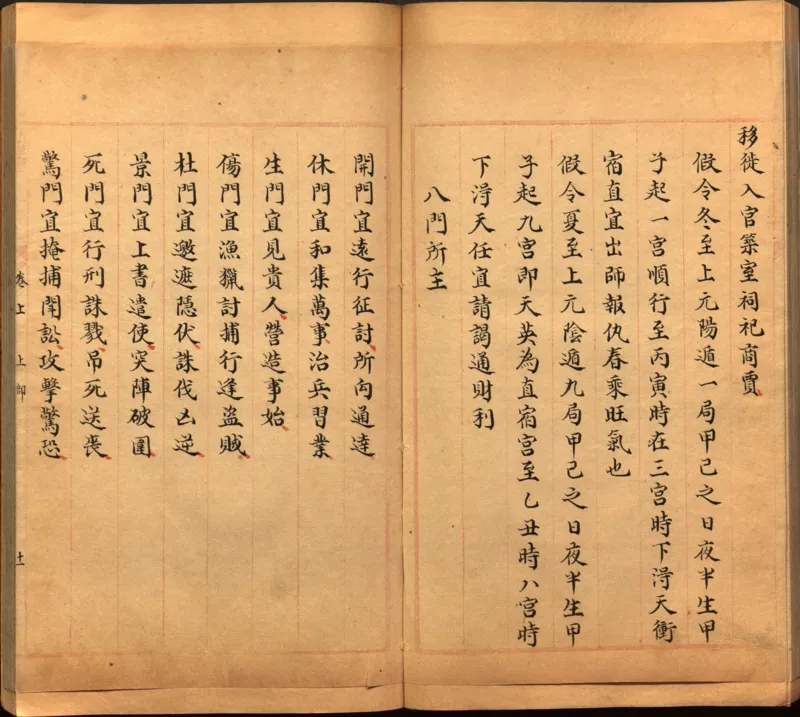 移徙入官築室祠祀商賈
假令冬至上元陽遁一局甲己之日夜半生甲
子起一宮順行至丙寅時在三宮時下淂天衝
宿直宜出師報仇春乘旺氣也
假令夏至上元陰遁九局甲己之日夜半生甲
子起九宮即天英為直宿宮至乙丑時八宮時
下淂天任宜請謁通財利
八門所主
開門宜遠行征討所向通達
休門宜和集萬事治兵習業
生門宜見貴人營造事始
傷門宜漁獵討捕行逢盜賊
杜門宜邀遮隱伏誅伐凶逆
景門宜上書遣使突陣破圍
死門宜行刑誅戮吊死送喪
驚門宜掩捕鬥訟攻擊驚恐
卷上 上
十一